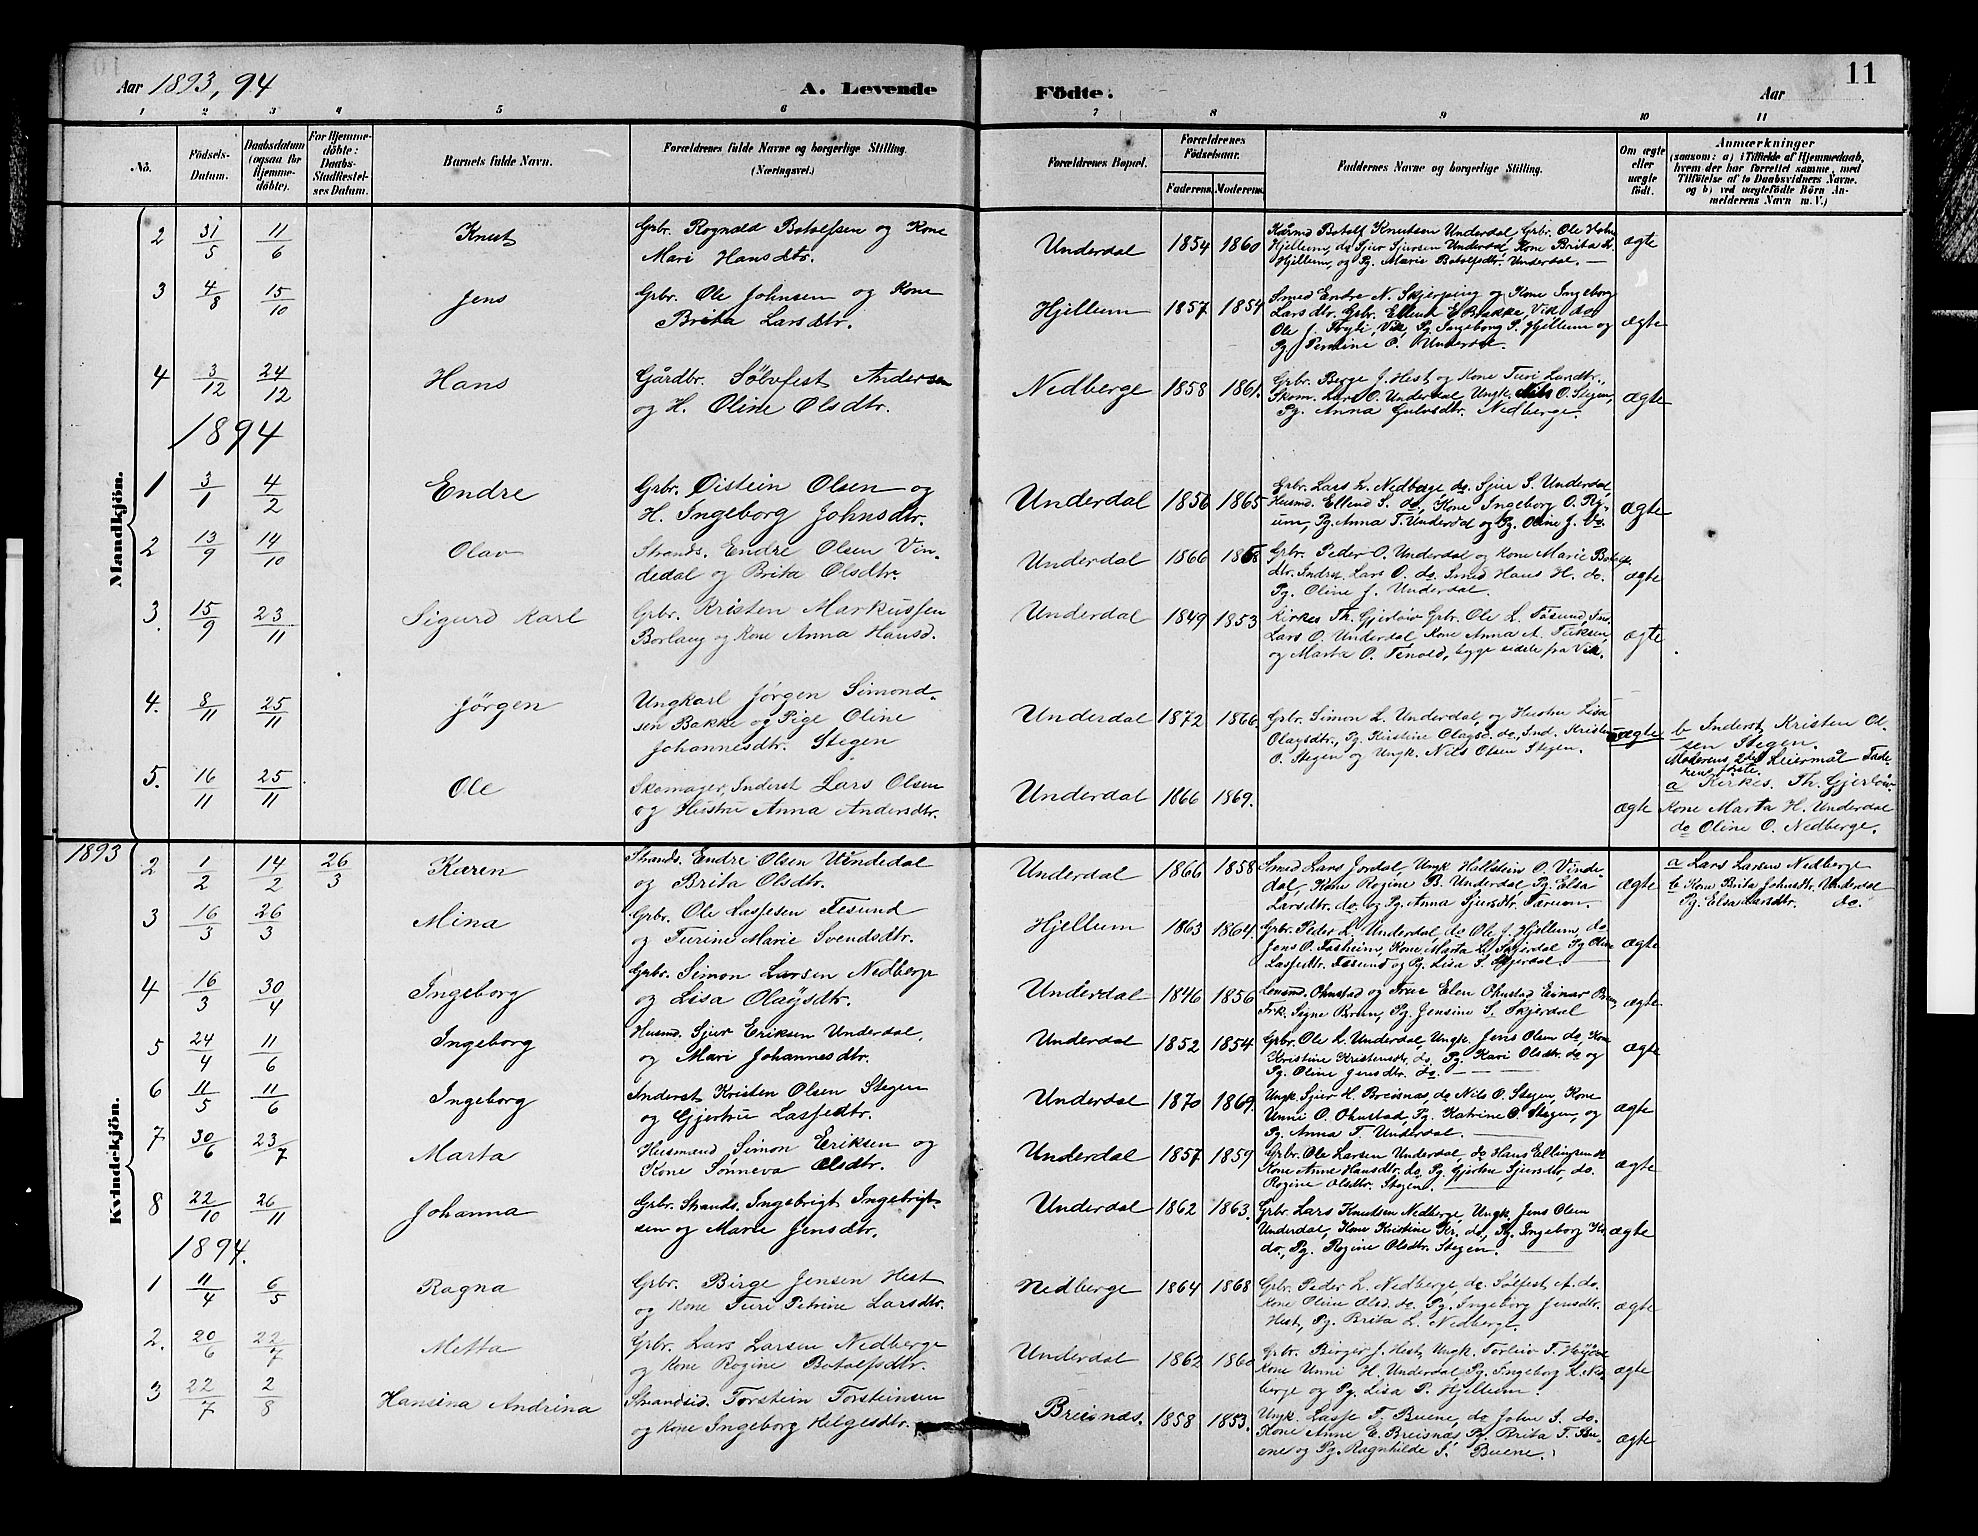 11
Aar 1893, 94
A. Levende
Födte.
Aar
1 2 3 4 5 6 7 8 9 10 11
No.
Födsels-
Datum.
Daabsdatum
(ogsaa for
Hjemme-
döbte).
For Hjemme-
döbte:
Daabs-
Stadfæstel-
ses Datum.
Barnets fulde Navn.
Forældrenes fulde Navne og borgerlige Stilling.
(Næringsvei.)
Forældrenes Bopæl.
Forældrenes
Födselsaar.
Faderens. Moderens.
Faddernes Navne og borgerlige Stilling.
Om ægte
eller
uægte
födt.
Anmærkninger
(saasom: a) i Tilfælde af Hjemmedaab,
hvem der har forrettet samme, med
Tilföielse af to Daabsvidners Navne.
og b) ved uægtefödte Börn An-
melderens Navn m. V.)
Mandkjön.
2 31/5 11/6 Knut
Grbr. Rognald Botolfsen og Kone
Mari Hansdtr.
Underdal 1854 1860
Kårmd Botolf Knutsen Underdal, Grbr. Ole Johns.
Hjellum, do Sjur Sjursen Underdal, Kone Brita
Hjellum, og Pg. Marie Botolfsdtr. Underdal. —
ægte
3 4/8 15/10 Jens
Grbr. Ole Johnsen og Kone
Brita Larsdtr.
Hjellum 1857 1854
Smed Endre N. Skjerping og Kone Ingeborg
Larsdtr. Grbr. Ellend E. Bakke, Vik do
Ole J. Vik, Pg. Ingeborg P. Hjellum og
Pg. Permine O. Underdal.
ægte
4 3/12 24/12 Hans
Gårdbr. Sölvfest Andersen
og H. Oline Olsdtr.
Nedberge 1858 1861.
Grbr. Berge J. Hest og Kone Turi Larsdtr.,
Skom. Lars O. Underdal, Ungk. Nils O. Stegen,
Pg. Anna Gulvsdtr. Nedberge.
ægte
1894
1 3/1 4/2 Endre
Grbr. Öistein Olsen og
H. Ingeborg Johnsdtr.
Underdal 1856 1865
Grbr. Lars L. Nedberge do. Sjur S. Underdal
Husmd. Ellend S. do, Kone Ingeborg O. Ry-
um, Pg. Anna T. Underdal og Pg. Oline J. do.
ægte
2 13/9 14/10 Olav
Strands. Endre Olsen Vin-
dedal og Brita Olsdtr.
Underdal 1866 1858
Grbr. Peder O. Underdal og Kone Marie Botolfs-
dtr. Inderst Lars O. do. Smed Hans H. do.
Pg. Oline J. Underdal.
ægte
3. 15/9 23/11 Sigurd Karl
Grbr. Kristen Markussen
Borlaug og Kone Anna Hansd.
Underdal 1849 1853
Kirkes Th. Gjerlöw Grbr. Ole L. Tösund,
Lars O. Underdal, Kone Anna A. Turksen,
og Marta O. Tenold, begge sidste fra Vik.
ægte
4. 8/11 25/11 Jörgen
Ungkarl Jörgen Simond-
sen Bakke og Pige Oline
Johannesdtr. Stegen
Underdal 1872 1866
Grbr. Simon L. Underdal, og Hustru Lisa
Olaysdtr., Pg. Kristine Olaysd. do, Ind. Kristen
O. Stegen og Ungk. Nils Olsen Stegen.
uægte
b Inderst Kristen Ol-
sen Stegen.
Moderens 2det Leiermål Fade-
rens förste.
5. 16/11 25/11 Ole
Skomager, Inderst Lars Olsen
og Hustru Anna Andersdtr.
Underdal 1866 1869.
ægte
a Kirkes. Th. Gjerlöw
Kone Marta H. Underdal
do Oline O. Nedberge.
Kvindekjön.
1893
2 1/2 14/2 26/3 Karen
Strands. Endre Olsen Vindedal
og Brita Olsdtr.
Underdal 1866 1858
Smed Lars Jordal, Ungk Hallstein O. Vinde-
dal, Kone Rogine B. Underdal Pg. Elsa
Larsdtr. do og Pg. Anna Sjursdtr.
ægte
a Lars Larsen Nedberge
b Kone Brita Johnsdtr. Underdal
Pg. Elsa Larsdtr. do.
3 16/3 26/3 Mina
Grbr. Ole Lassesen Tesund
og Turine Marie Svendsdtr.
Hjellum 1863 1864.
Grbr. Peder L. Underdal, do Ole J. Hjellum, do
Jens O. Tasheim, Kone Marta L. Skjerdal Pg Oline
Lassedtr. Tesund og Pg. Lisa S. Skjerdal.
ægte
4 16/3 30/4 Ingeborg
Grbr. Simon Larsen Nedberge
og Lisa Olaysdtr.
Underdal 1846 1856
Lensmd. Ohnstad og Frue Elen Ohnstad Einar Brun
Frk. Signe Brun, Pg. Jensine S. Skjerdal
ægte
5 24/4 11/6 Ingeborg
Husmd. Sjur Eriksen Underdal,
og Mari Johannesdtr.
Underdal 1852 1854
Grbr. Ole L. Underdal, Ungk. Jens Olsen do, Kone
Kristine Kristensdtr. do, Pg. Kari Olsdtr. do og
Pg. Oline Jensdtr. do. —
ægte
6 11/5 11/6 Ingeborg
Inderst Kristen Olsen Stegen
og Gjertrue Lassedtr.
Underdal 1870 1869
Ungk. Sjur H. Breisnæs, do Nils O. Stegen, Kone
Unni O. Ohnstad, Pg. Katrine O. Stegen, og
Pg. Anna T. Underdal. —
ægte
7 30/6 23/7 Marta
Husmand Simon Eriksen og
Kone Sönneva Olsdtr.
Underdal 1857 1859
Grbr. Ole Larsen Underdal, do Hans Ellingsen do
Kone Anne Hansdtr. do, Pg. Gjerten Sjursdtr, do.
Rogine Olsdtr. Stegen. —
ægte
8 22/10 26/11 Johanna
Grbr. Strands. Ingebrigt Ingebrigt-
sen og Marie Jensdtr.
Underdal 1862 1863.
Grbr. Lars Knutsen Nedberge, Ungk. Jens Olsen
Underdal, Kone Kristine Kr. do, Pg. Ingeborg
do, Pg. Rogine Olsdtr. Stegen. —
ægte
1894.
1 11/4 6/5 Ragna
Grbr. Birge Jensen Hest
og Kone Turi Petrine Larsdtr.
Nedberge 1864 1868
Grbr. Peder L. Nedberge, do. Sölfest A. do.
Kone Oline Olsd. do. Pg. Ingeborg Jensdtr.
Hest, Pg. Brita L. Nedberge.
ægte
2. 20/6 22/7 Metta
Grbr. Lars Larsen Nedberge
og Kone Rogine Botolfsdtr.
Underdal 1862 1860
Grbr. Birger J. Hest, Ungk. Torleiv T.
Kone Unni H. Underdal Pg. Ingeborg L. Ned-
berge og Pg. Lisa P. Hjellum.
ægte
3 22/7 2/8 Hansina Andrina
Strandsid. Torstein Torsteinsen
og Kone Ingeborg Helgesdtr.
Breisnæs. 1858 1853.
Ungk. Lasse T. Buene, do John S. do.
Kone Anne E. Breisnæs Pg. Brita T. Bu-
ene og Pg. Ragnhilde S. Buene.
ægte